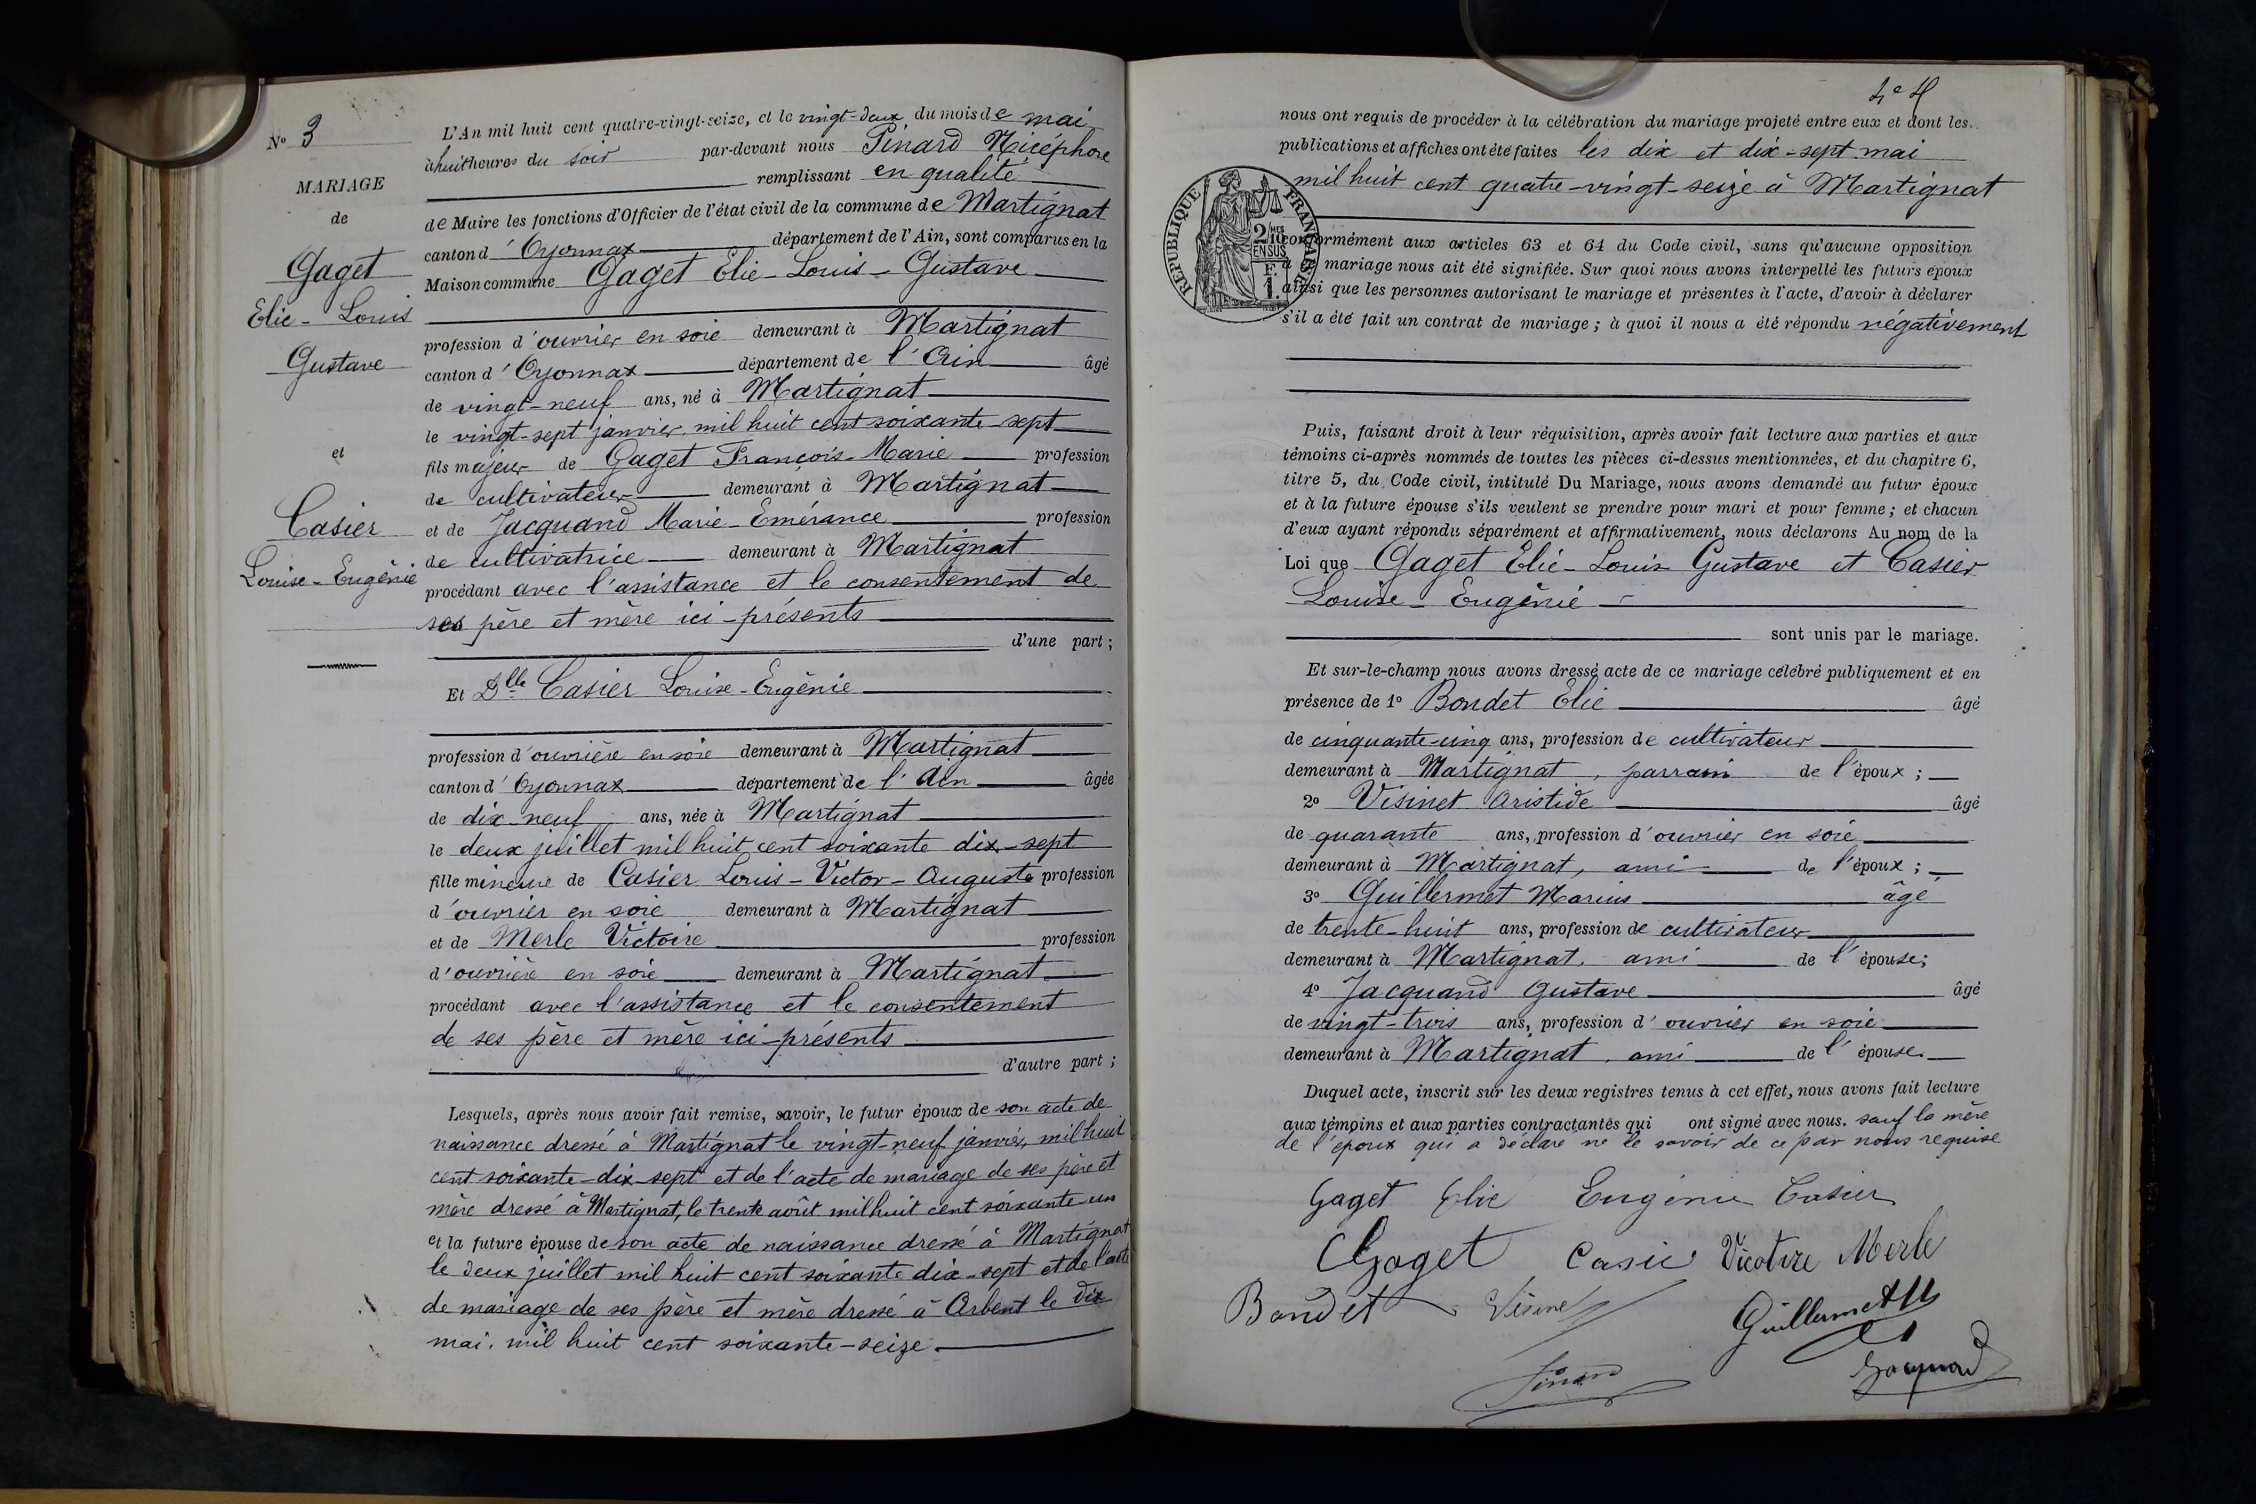 N° 3
MARIAGE
de
Gaget
Elie - Louis
Gustave
et
Casier
Louise - Eugénie
L'An mil huit cent quatre-vingt-seize, et le vingt-deux du mois de mai
à huit heures du soir par-devant nous Pinard Nicéphore
remplissant en qualité
de Maire les fonctions d'Officier de l'état civil de la commune de Martignat
canton d'Oyonnax département de l'Ain, sont comparus en la
Maison commune Gaget Elie - Louis - Gustave
profession d'ouvrier en soie demeurant à Martignat
canton d'Oyonnax département de l'Ain âgé
de vingt-neuf ans, né à Martignat
le vingt-sept janvier mil huit cent soixante sept
fils majeur de Gaget François-Marie profession
de cultivateur demeurant à Martignat
et de Jacquand Marie-Emérance profession
de cultivatrice demeurant à Martignat
procédant avec l'assistance et le consentement de
ses père et mère ici-présents
d'une part ;
Et Dlle Casier Louise-Eugénie
profession d'ouvrière en soie demeurant à Martignat
canton d'Oyonnax département de l'Ain âgée
de dix-neuf ans, née à Martignat
le deux juillet mil huit cent soixante dix-sept
fille mineure de Casier Louis-Victor-Auguste profession
d'ouvrier en soie demeurant à Martignat
et de Merle Victoire profession
d'ouvrière en soie demeurant à Martignat
procédant avec l'assistance et le consentement
de ses père et mère ici-présents
d'autre part ;
Lesquels, après nous avoir fait remise, savoir, le futur époux de son acte de
naissance dressé à Martignat le vingt-neuf janvier, mil huit
cent soixante-dix-sept et de l'acte de mariage de ses père et
mère dressé à Martignat, le trente août mil huit cent soixante-un
et la future épouse de son acte de naissance dressé à Martignat
le deux juillet mil huit cent soixante dix-sept et de l'acte
de mariage de ses père et mère dressé à Arbent le dix
mai, mil huit cent soixante-seize
nous ont requis de procéder à la célébration du mariage projeté entre eux et dont les
publications et affiches ont été faites les dix et dix-sept mai
mil huit cent quatre-vingt-seize à Martignat
RÉPUBLIQUE FRANÇAISE
2/10MES
EN SUS
F.
1.
conformément aux articles 63 et 64 du Code civil, sans qu'aucune opposition
à ce mariage nous ait été signifiée. Sur quoi nous avons interpellé les futurs époux
ainsi que les personnes autorisant le mariage et présentes à l'acte, d'avoir à déclarer
s'il a été fait un contrat de mariage ; à quoi il nous a été répondu négativement
Puis, faisant droit à leur réquisition, après avoir fait lecture aux parties et aux
témoins ci-après nommés de toutes les pièces ci-dessus mentionnées, et du chapitre 6,
titre 5, du Code civil, intitulé Du Mariage, nous avons demandé au futur époux
et à la future épouse s'ils veulent se prendre pour mari et pour femme ; et chacun
d'eux ayant répondu séparément et affirmativement, nous déclarons Au nom de la
Loi que Gaget Elie-Louis Gustave et Casier
Louise-Eugénie
sont unis par le mariage.
Et sur-le-champ nous avons dressé acte de ce mariage célébré publiquement et en
présence de 1° Bondet Elie âgé
de cinquante-cinq ans, profession de cultivateur
demeurant à Martignat, parrain de l'époux ;
2° Visinet Aristide âgé
de quarante ans, profession d'ouvrier en soie
demeurant à Martignat, ami de l'époux ;
3° Guillermet Marius âgé
de trente-huit ans, profession de cultivateur
demeurant à Martignat, ami de l'épouse ;
4° Jacquand Gustave âgé
de vingt-trois ans, profession d'ouvrier en soie
demeurant à Martignat, ami de l'épouse.
Duquel acte, inscrit sur les deux registres tenus à cet effet, nous avons fait lecture
aux témoins et aux parties contractantes qui ont signé avec nous. sauf la mère
de l'époux qui a déclaré ne le savoir de ce par nous requise
Gaget Elie Eugénie Casier
Gaget Casier Victoire Merle
Bondet Visinet Guillermet
Pinard Jacquand